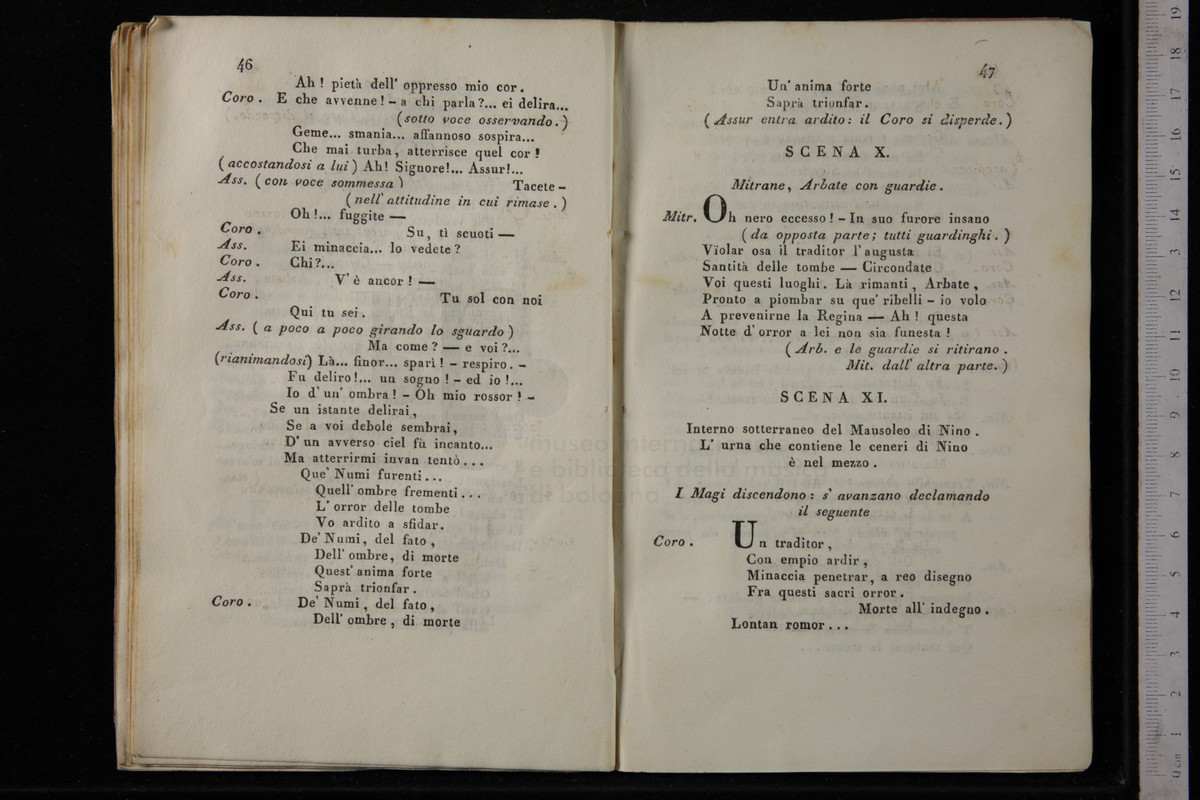 46
Ah ! pietà dell' oppresso mio cor .
Coro . E che avvenne ! – a chi parla ?... ei delira...
(sotto voce osservando . )
Geme... smania... affannoso sospira...
Che mai turba, atterrisce quel cor !
( accostandosi a lui ) Ah! Signore!... Assur!...
Ass. ( con voce sommessa ) Tacete –
( nell' attitudine in cui rimase . )
Oh !... fuggite —
Coro . Su, tì scuoti —
Ass. Ei minaccia... lo vedete ?
Coro . Chi ?...
Ass. V' è ancor ! —
Coro . Tu sol con noi
Qui tu sei .
Ass. ( a poco a poco girando lo sguardo )
Ma come ? — e voi ?...
(rianimandosi) Là... finor... sparì ! – respiro . –
Fu deliro !... un sogno ! – ed io !...
Io d' un' ombra ! – Oh mio rossor ! –
Se un istante delirai ,
Se a voi debole sembrai,
D' un avverso ciel fù incanto...
Ma atterrirmi invan tentò . . .
Que' Numi furenti . . .
Quell' ombre frementi . . .
L' orror delle tombe
Vo ardito a sfidar.
De' Numi, del fato ,
Dell' ombre, di morte
Quest' anima forte
Saprà trionfar .
Coro . De' Numi , del fato ,
Dell' ombre , di morte
47
Un' anima forte
Saprà trionfar .
( Assur entra ardito : il Coro si disperde . )
SCENA X.
Mitrane , Arbate con guardie .
Mitr. Oh nero eccesso ! – In suo furore insano
( da opposta parte ; tutti guardinghi . )
Violar osa il traditor l' augusta
Santità delle tombe — Circondate
Voi questi luoghi . Là rimanti , Arbate ,
Pronto a piombar su que' ribelli – io volo
A prevenirne la Regina — Ah ! questa
Notte d' orror a lei non sia funesta !
( Arb. e le guardie si ritirano .
Mit. dall' altra parte. )
SCENA XI.
Interno sotterraneo del Mausoleo di Nino .
L' urna che contiene le ceneri di Nino
è nel mezzo .
I Magi discendono : s' avanzano declamando
il seguente
Coro . Un traditor ,
Con empio ardir ,
Minaccia penetrar, a reo disegno
Fra questi sacri orror .
Morte all' indegno .
Lontan romor . . .
museo internazionale
e biblioteca della musica
di bologna
0 cm 1 2 3 4 5 6 7 8 9 10 11 12 13 14 15 16 17 18 19